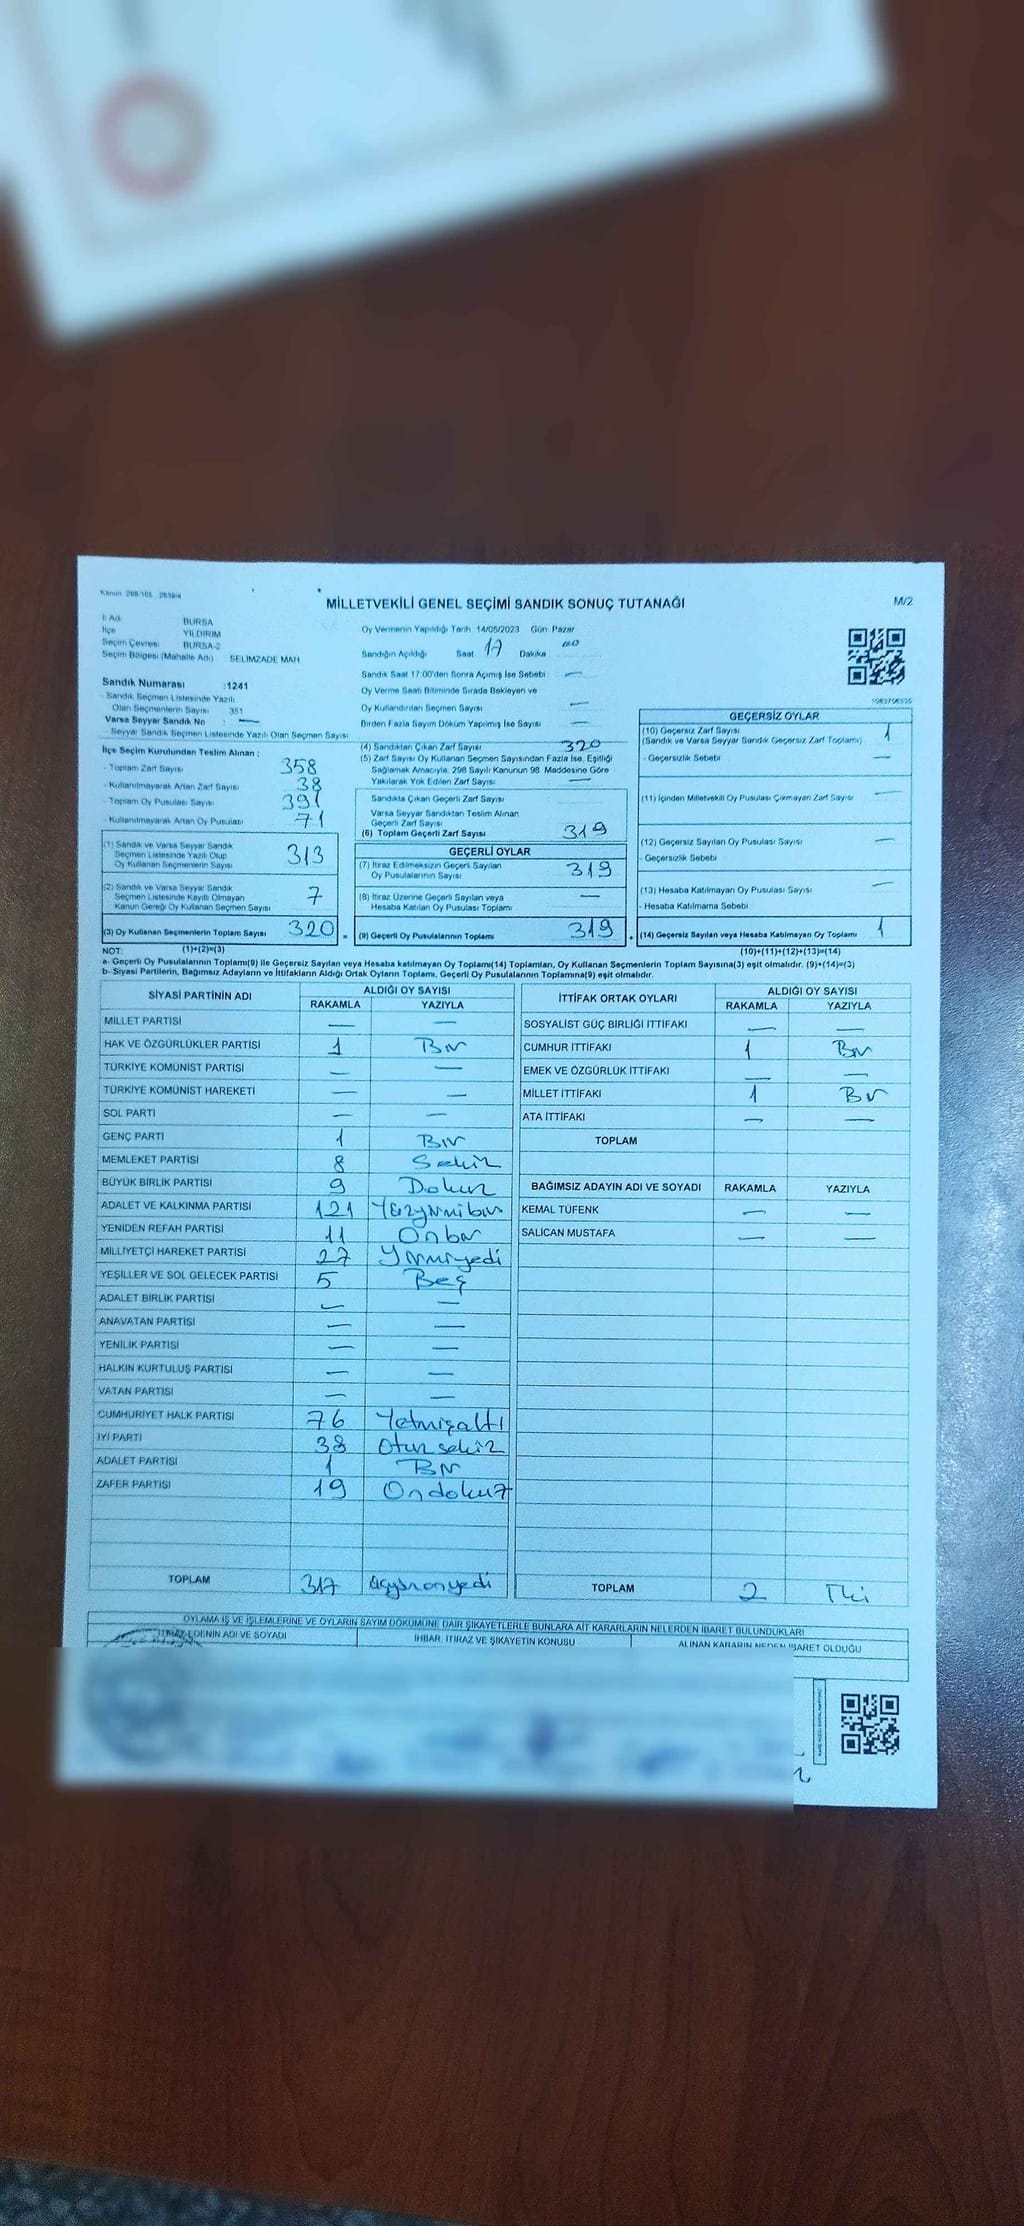 MİLLETVEKİLİ GENEL SEÇİMİ SANDIK SONUÇ TUTANAĞI
M/2
İl Adı BURSA
İlçe YILDIRIM
Seçim Çevresi BURSA-2
Seçim Bölgesi (Mahalle Adı) SELİMZADE MAH
Sandık Numarası :1241
- Sandık Seçmen Listesinde Yazılı
Olan Seçmenlerin Sayısı 351
Varsa Seyyar Sandık No : —
- Seyyar Sandık Seçmen Listesinde Yazılı Olan Seçmen Sayısı
Oy Vermenin Yapıldığı Tarih :14/05/2023 Gün: Pazar
Sandığın Açıldığı Saat 17 Dakika 00
Sandık Saat 17.00'den Sonra Açımış İse Sebebi —
Oy Verme Saati Bitiminde Sırada Bekleyen ve
Oy Kullandırılan Seçmen Sayısı —
Birden Fazla Sayım Döküm Yapılmış İse Sayısı —
İlçe Seçim Kurulundan Teslim Alınan :
- Toplam Zarf Sayısı 358
- Kullanılmayarak Artan Zarf Sayısı 38
- Toplam Oy Pusulası Sayısı 391
- Kullanılmayarak Artan Oy Pusulası 71
(1) Sandık ve Varsa Seyyar Sandık
Seçmen Listesinde Yazılı Olup
Oy Kullanan Seçmenlerin Sayısı 313
(2) Sandık ve Varsa Seyyar Sandık
Seçmen Listesinde Kayıtlı Olmayan
Kanun Gereği Oy Kullanan Seçmen Sayısı 7
(3) Oy Kullanan Seçmenlerin Toplam Sayısı 320
(4) Sandıktan Çıkan Zarf Sayısı 320
(5) Zarf Sayısı Oy Kullanan Seçmen Sayısından Fazla İse, Eşitliği
Sağlamak Amacıyla, 298 Sayılı Kanunun 98. Maddesine Göre
Yakılarak Yok Edilen Zarf Sayısı —
Sandıkta Çıkan Geçerli Zarf Sayısı
Varsa Seyyar Sandıktan Teslim Alınan
Geçerli Zarf Sayısı
(6) Toplam Geçerli Zarf Sayısı 319
GEÇERLİ OYLAR
(7) İtiraz Edilmeksizin Geçerli Sayılan
Oy Pusulalarının Sayısı 319
(8) İtiraz Üzerine Geçerli Sayılan veya
Hesaba Katılan Oy Pusulası Toplamı —
(9) Geçerli Oy Pusulalarının Toplamı 319
GEÇERSİZ OYLAR
(10) Geçersiz Zarf Sayısı 1
(Sandık ve Varsa Seyyar Sandık Geçersiz Zarf Toplamı)
- Geçersizlik Sebebi —
(11) İçinden Milletvekili Oy Pusulası Çıkmayan Zarf Sayısı —
(12) Geçersiz Sayılan Oy Pusulası Sayısı —
- Geçersizlik Sebebi
(13) Hesaba Katılmayan Oy Pusulası Sayısı —
- Hesaba Katılmama Sebebi
(14) Geçersiz Sayılan veya Hesaba Katılmayan Oy Toplamı 1
NOT: (1)+(2)=(3) (10)+(11)+(12)+(13)=(14)
a- Geçerli Oy Pusulalarının Toplamı(9) ile Geçersiz Sayılan veya Hesaba katılmayan Oy Toplamı(14) Toplamları, Oy Kullanan Seçmenlerin Toplam Sayısına(3) eşit olmalıdır. (9)+(14)=(3)
b- Siyasi Partilerin, Bağımsız Adayların ve İttifakların Aldığı Ortak Oyların Toplamı, Geçerli Oy Pusulalarının Toplamına(9) eşit olmalıdır.
SİYASİ PARTİNİN ADI ALDIĞI OY SAYISI
RAKAMLA YAZIYLA
MİLLET PARTİSİ — —
HAK VE ÖZGÜRLÜKLER PARTİSİ 1 Bir
TÜRKİYE KOMÜNİST PARTİSİ — —
TÜRKİYE KOMÜNİST HAREKETİ — —
SOL PARTİ — —
GENÇ PARTİ 1 Bir
MEMLEKET PARTİSİ 8 Sekiz
BÜYÜK BİRLİK PARTİSİ 9 Dokuz
ADALET VE KALKINMA PARTİSİ 121 Yüzyirmibir
YENİDEN REFAH PARTİSİ 11 Onbir
MİLLİYETÇİ HAREKET PARTİSİ 27 Yirmiyedi
YEŞİLLER VE SOL GELECEK PARTİSİ 5 Beş
ADALET BİRLİK PARTİSİ — —
ANAVATAN PARTİSİ — —
YENİLİK PARTİSİ — —
HALKIN KURTULUŞ PARTİSİ — —
VATAN PARTİSİ — —
CUMHURİYET HALK PARTİSİ 76 Yetmişaltı
İYİ PARTİ 38 Otuzsekiz
ADALET PARTİSİ 1 Bir
ZAFER PARTİSİ 19 Ondokuz
TOPLAM 317 üçyüzonyedi
İTTİFAK ORTAK OYLARI ALDIĞI OY SAYISI
RAKAMLA YAZIYLA
SOSYALİST GÜÇ BİRLİĞİ İTTİFAKI — —
CUMHUR İTTİFAKI 1 Bir
EMEK VE ÖZGÜRLÜK İTTİFAKI — —
MİLLET İTTİFAKI 1 Bir
ATA İTTİFAKI — —
TOPLAM
BAĞIMSIZ ADAYIN ADI VE SOYADI RAKAMLA YAZIYLA
KEMAL TÜFENK — —
SALİCAN MUSTAFA — —
TOPLAM 2 İki
OYLAMA İŞ VE İŞLEMLERİNE VE OYLARIN SAYIM DÖKÜMÜNE DAİR ŞİKAYETLERLE BUNLARA AİT KARARLARIN NELERDEN İBARET BULUNDUKLARI
İTİRAZ EDENİN ADI VE SOYADI
İHBAR, İTİRAZ VE ŞİKAYETİN KONUSU
ALINAN KARARIN NEDEN İBARET OLDUĞU